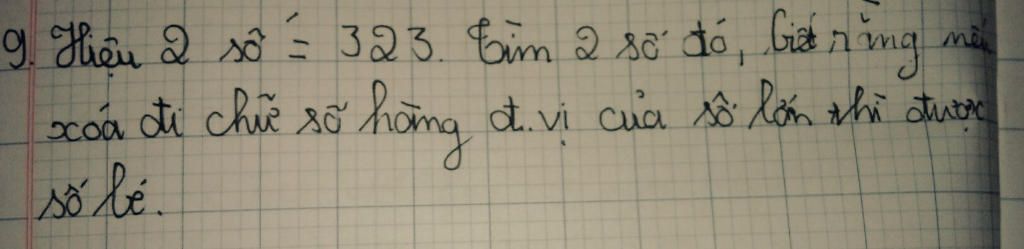 9. Hiệu 2 số = 323. Tìm 2 số đó, biết rằng nếu
xoá đi chữ số hàng đ.vị của số lớn thì được
số bé.